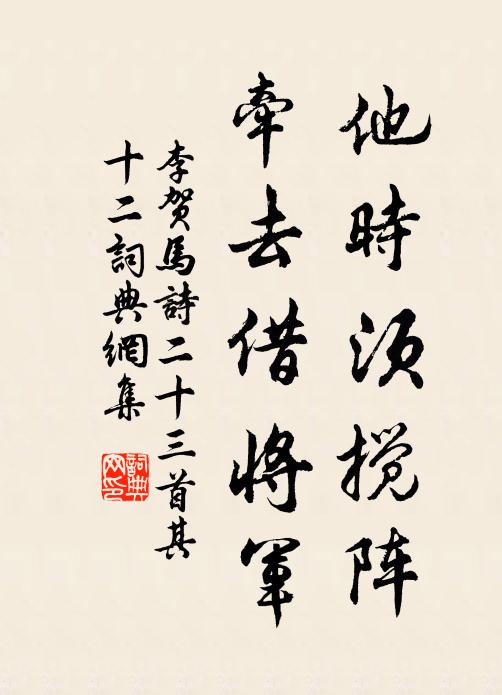 他時须搅阵
牽去借將軍
李賀馬詩二十三首其
十二詞典網集
詞典
网印